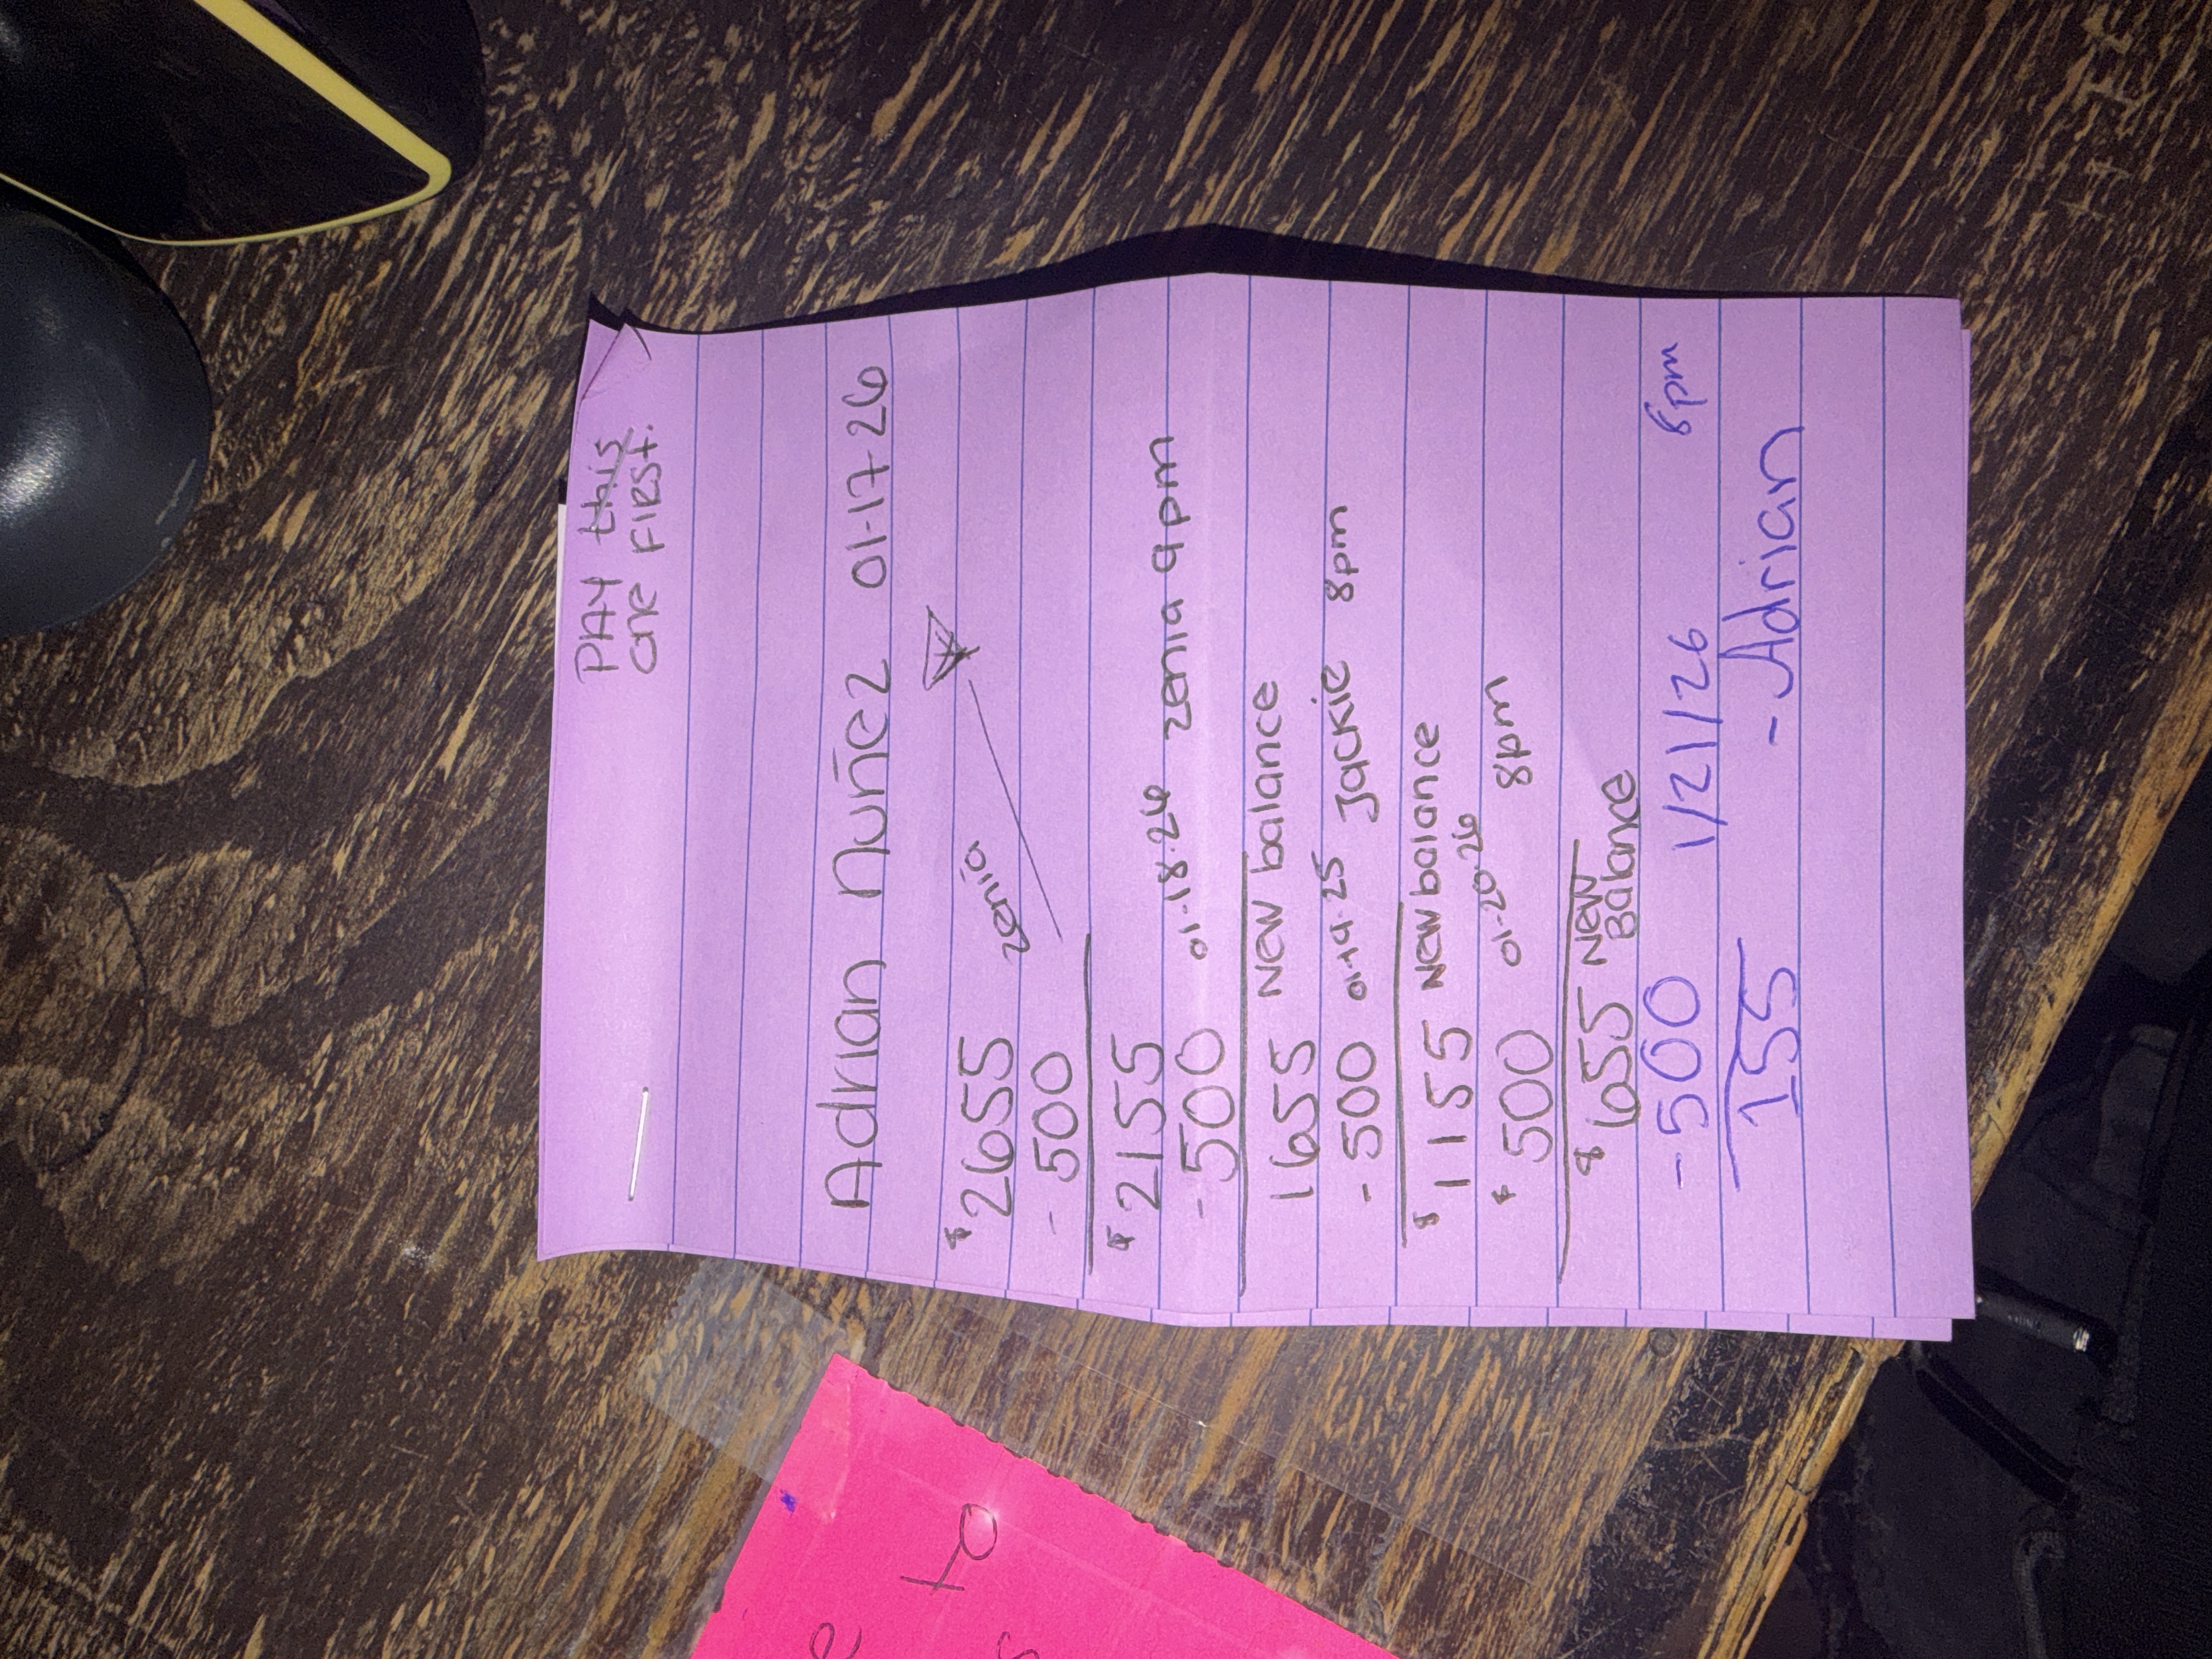 PAY this
one FIRST.
Adrian Nuñez 01-17-26
$2655 zenia
- 500
$2155
- 500 01-18-26 zenia 9pm
1655 New balance
- 500 01-19-25 Jackie 8pm
$1155 New balance
$500 01-20-26 8pm
$655 New
Balance
- 500 1/21/26 8pm
155 - Adrian
to